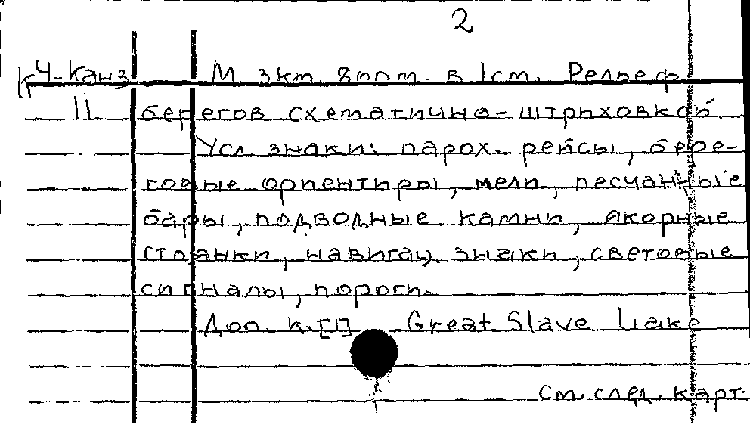 2
К4-Канз М. экт. 8 дпт. в 1см. Рельеф
11 берегов схематично-штриховкой
Усл. знаки: парох. рейсы, бере-
говые ориентиры, мели, песчанные
бары, подводные камни, якорные
стоянки, навигац. знаки, световые
сигналы, пороги.
Доп. к. [1] Great Slave Lake
См. след. карт.